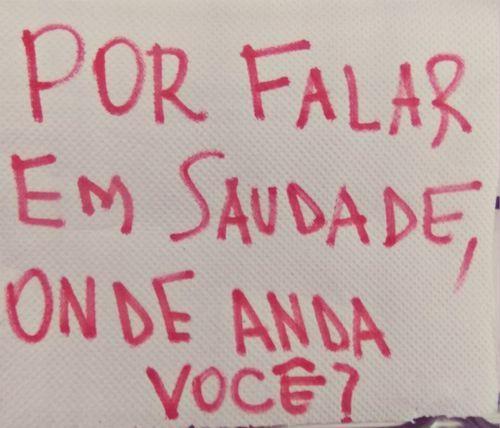 POR FALAR
EM SAUDADE,
ONDE ANDA
VOCÊ?